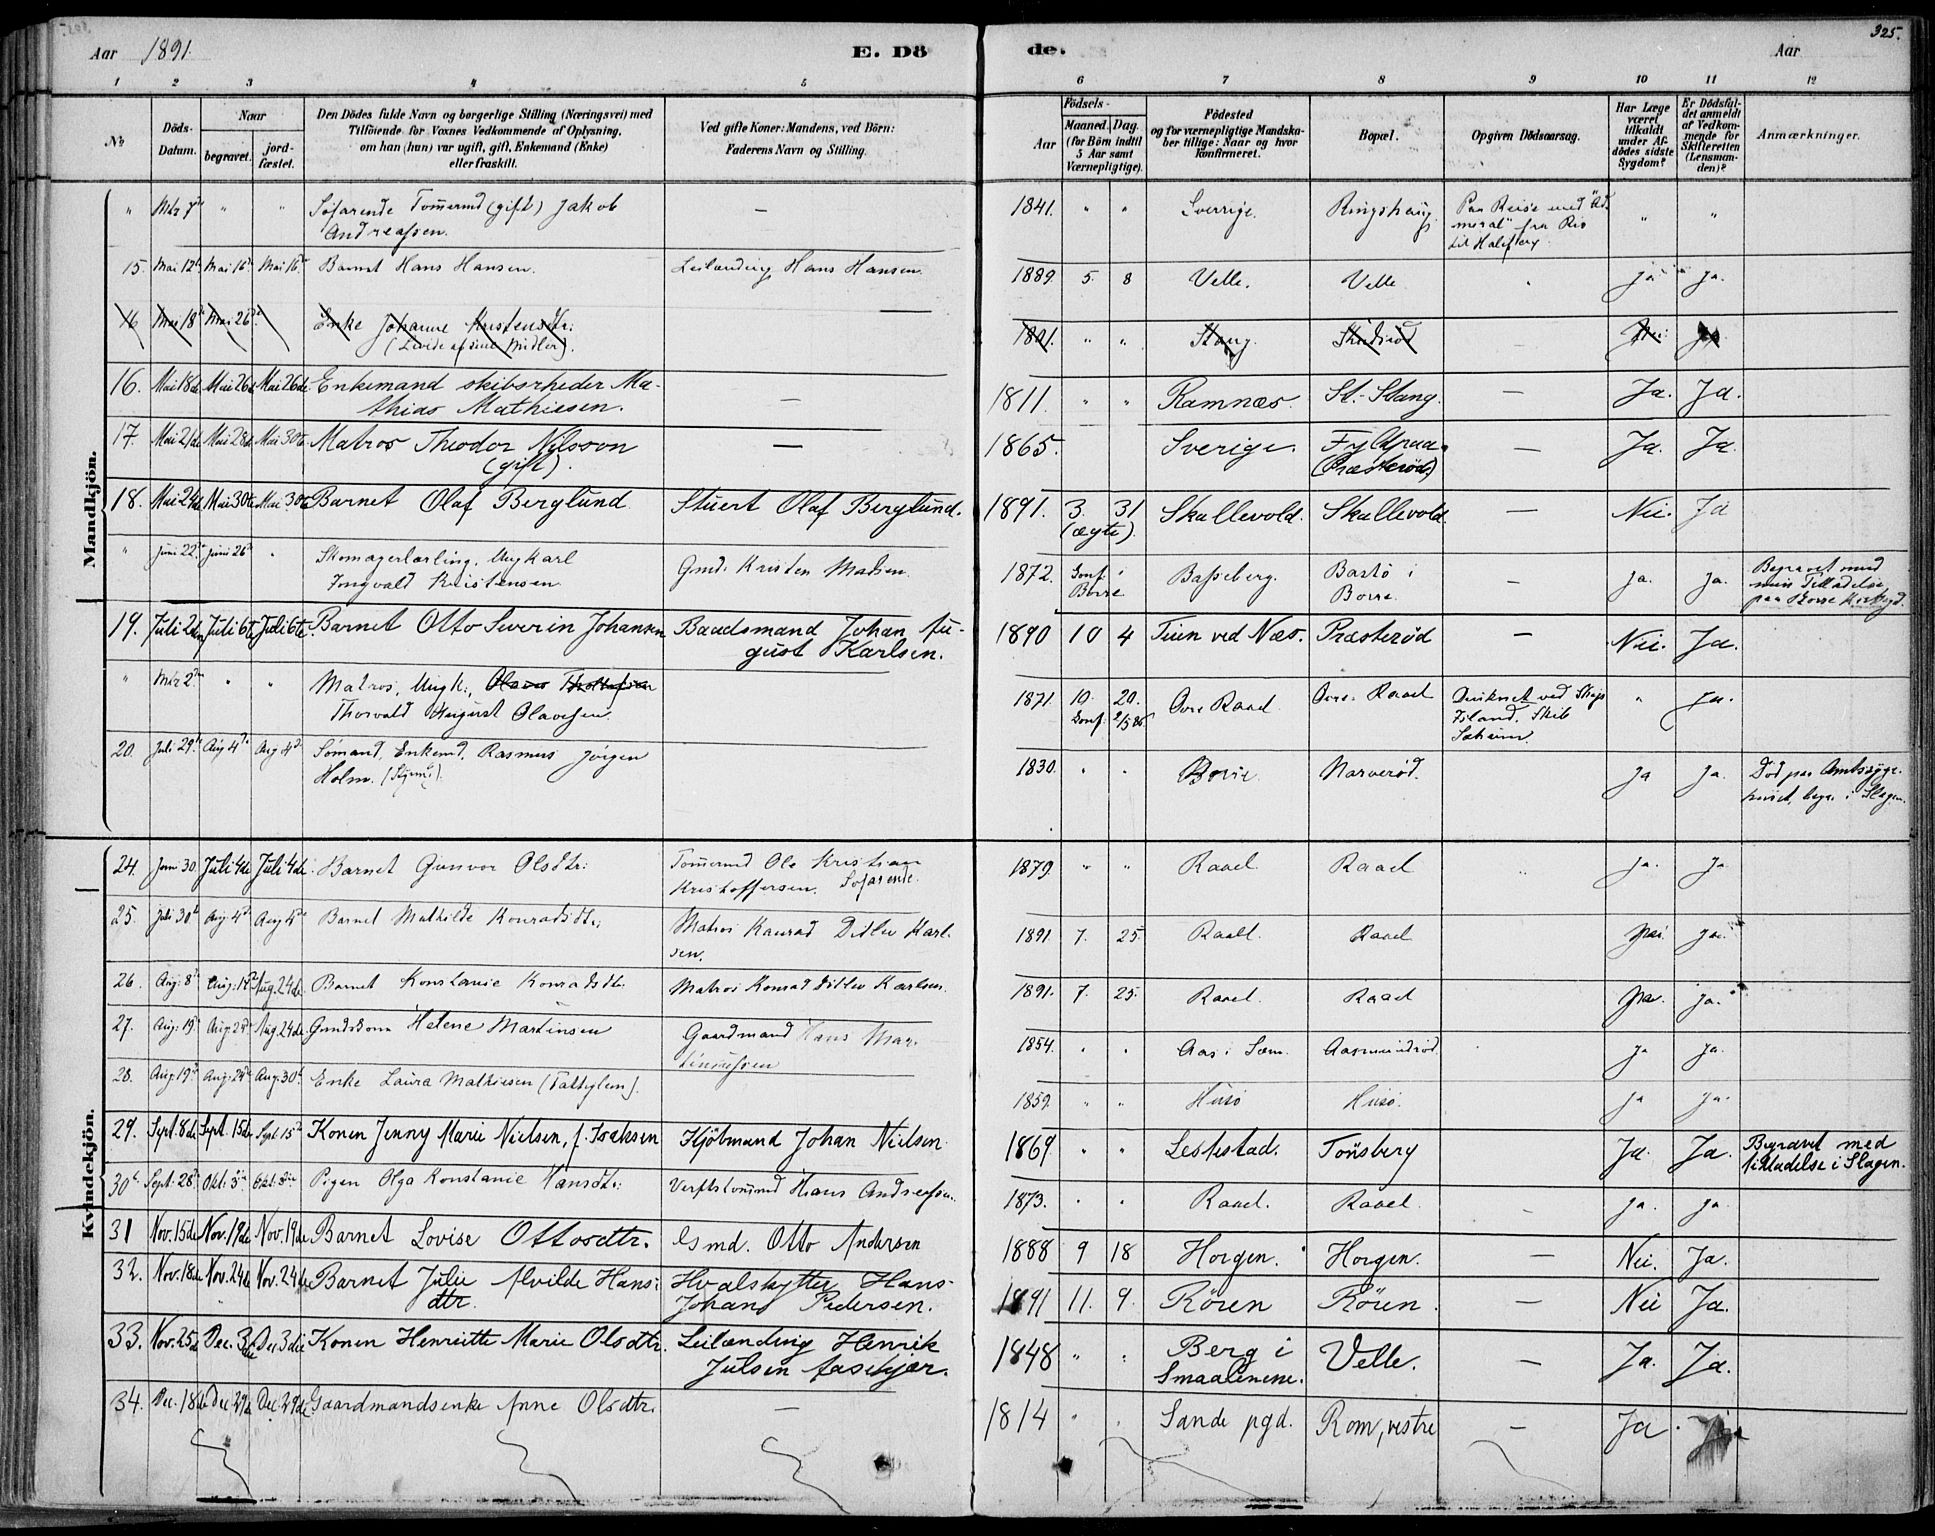 Aar 1891. E. Döde. Aar 325.
1 2 3 4 5 6 7 8 9 10 11 12
No
Döds-Datum.
Naar
begravet.
jordfæstet.
Den Dödes fulde Navn og borgerlige Stilling (Næringsvei) med
Tilföiende for Voxnes Vedkommende af Oplysning,
om han (hun) var ugift, gift, Enkemand (Enke)
eller fraskilt.
Ved gifte Koner: Mandens, ved Börn:
Faderens Navn og Stilling.
Födsels-
Aar
Maaned. Dag.
(for Börn indtil
5 Aar samt
Værnepligtige).
Födested
og for værnepligtige Mandska-
ber tillige: Naar og hvor
konfirmeret.
Bopæl.
Opgiven Dödsaarsag.
Har Læge
været
tilkaldt
under Af-
dödes sidste
Sygdom?
Er Dödsfal-
det anmeldt
af Vedkom-
mende for
Skifteretten
(Lensman-
den)?
Anmærkninger.
Mandkjön.
" Mts 7de " " Söfarende Tömermd (gift) Jakob — 1841. " " Sverrige. Ringshaug. Paa Reise med "Ad-
Andreassen. miral" fra Rio
til Halifax " "
15. Mai 12te Mai 16de Mai 16de Barnet Hans Hansen. Leilænding Hans Hansen. 1889. 5. 8 Velle. Velle " ja ja.
16 Mai 18de Mai 26de Enke Johanne Kristensdtr: 1801. " " Stang. — Nei Ja
(Levede af sine Midler).
16. Mai 18de Mai 26de Mai 26de Enkemand skibsrheder Ma- — 1811. " " Ramnæs. St. Stang. — Ja. Ja.
thias Mathiesen.
17. Mai 21de Mai 28de Mai 30te Matros Theodor Nilsson — 1865. Sverige. — Ja. Ja.
(gift). (Præsterød)
18. Mai 24de Mai 30te Mai 30te Barnet Olaf Berglund Stuert Olaf Berglund. 1891. 3. 31 Skallevold. Skallevold. — Nei. Ja
(ægte).
" Juni 22de Juni 26de " Skomagerlærling, Ungkarl Gmd. Kristen Madsen. 1872. Conf. i Basseberg. Bastö i — ja. ja. Begravet med
Ingvald Kristensen. Borre Borre. min Tilladelse
paa Borre Kirkegd.
19. Juli 2den Juli 6te Juli 6te Barnet Otto Severin Johansen Baadsmand Johan Au- 1890 10 4 Teien ved Næs. Præsterød — Nei. Ja.
gust Karlsen.
" Mts 2den " " Matros, Ungk., 1871. 10. 20. Övre Raael Övre Raael Druknet ved " Ja.
Thorvald August Olavesen. Conf. 2/5 86 Island. Skib
20. Juli 29de Aug 4de Aug 4de Sömand, Enkemd, Rasmus Jörgen 1830. " " Borre. Narveröd. ja ja. Död paa Amtssyge-
Holm. huset, begr. i Slagen.
Kvindekjön.
24. Juni 30. Juli 4de Juli 4de Barnet Gunvor Olsdtr: Tömermd Ole Kristian 1879. " " Raael Raael " ja. ja
Kristoffersen. Söfarende.
25. Juli 30te Aug 4de Aug 4de Barnet Mathilde Konradsdtr: Matros Konrad Ditlev Karl- 1891 7. 25. Raael. Raael Nei. ja.
sen.
26. Aug: 8de Aug: Aug. 24de Barnet Konstanse Konradsdtr. Matros Konrad Ditlev Karlsen. 1891. 7. 25. Raael. Raael ja.
27. Aug: 19de Aug 24de Aug. 24de Helene Martinsen Gaardmand Hans Mar- 1854. " " Aas i Sem. Aasmundröd ja ja.
tinussen
28. Aug. 19de Aug: 24de Aug. 30te Enke Laura Mathiesen (Fattiglem). 1859. " " Husö Husö. ja ja.
29. Sept. 8de Sept. 15de Sept. 15de Konen Jenny Marie Nielsen, f. Isaksen Kjöbmand Johan Nielsen. 1869. " " Lestestad. Tönsberg Ja. Ja. Begravet med
tilladelse i Slagen.
30te Sept. 28de Okt: 3die Okt: 3die Pigen Olga Konstanse Hansdtr: Verftstömmd Hans Andreassen. 1873. " " Raael. Raael. ja. ja.
31 Nov. 15de Nov. 19de Nov. 19de Barnet Lovise Ottosdtr. Gmd. Otto Andersen 1888 9 18 Horgen. Horgen. — Nei. Ja.
32. Nov. 18de Nov. 24de Nov. 24de Barnet Julie Alvilde Hans- Hvalskytter Hans 1891 11. 9. Rören Rören. — Nei Ja.
dtr. Johan Pedersen.
33. Nov. 25de Dec. 3die Dec. 3die Konen Henriette Marie Olsdtr. Leilænding Henrik 1848 " " Berg i Velle. — Ja. Ja.
Julsen Aasekjær. Smaalenene.
34. Dec. 18de Dec. 29de Dec. 29de Gaardmandsenke Anne Olsdtr. — 1814 " " Sande pgd. Rom, vestre — Ja. Ja